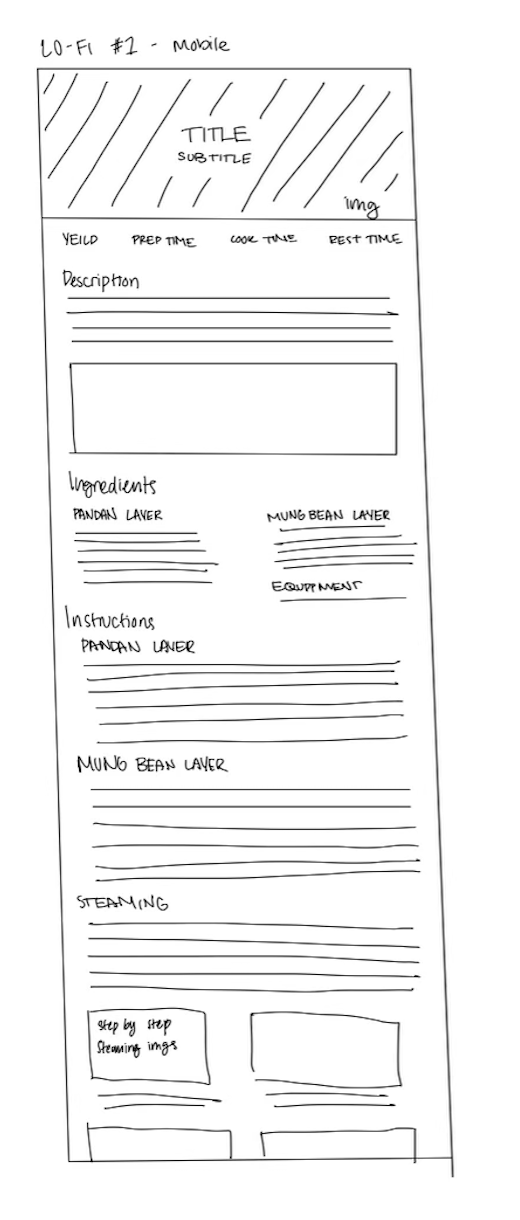 LO-FI #1 - Mobile
TITLE
SUBTITLE
img
YEILD PREP TIME COOK TIME REST TIME
Description
Ingredients
PANDAN LAYER
MUNG BEAN LAYER
EQUIPMENT
Instructions
PANDAN LAYER
MUNG BEAN LAYER
STEAMING
Step by step
Steaming imgs